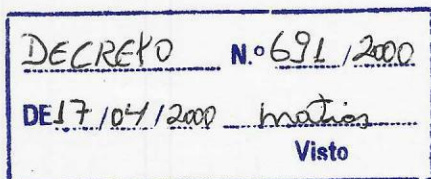 DECRETO N.º 691/2000
DE 17/04/2000 Matias
Visto